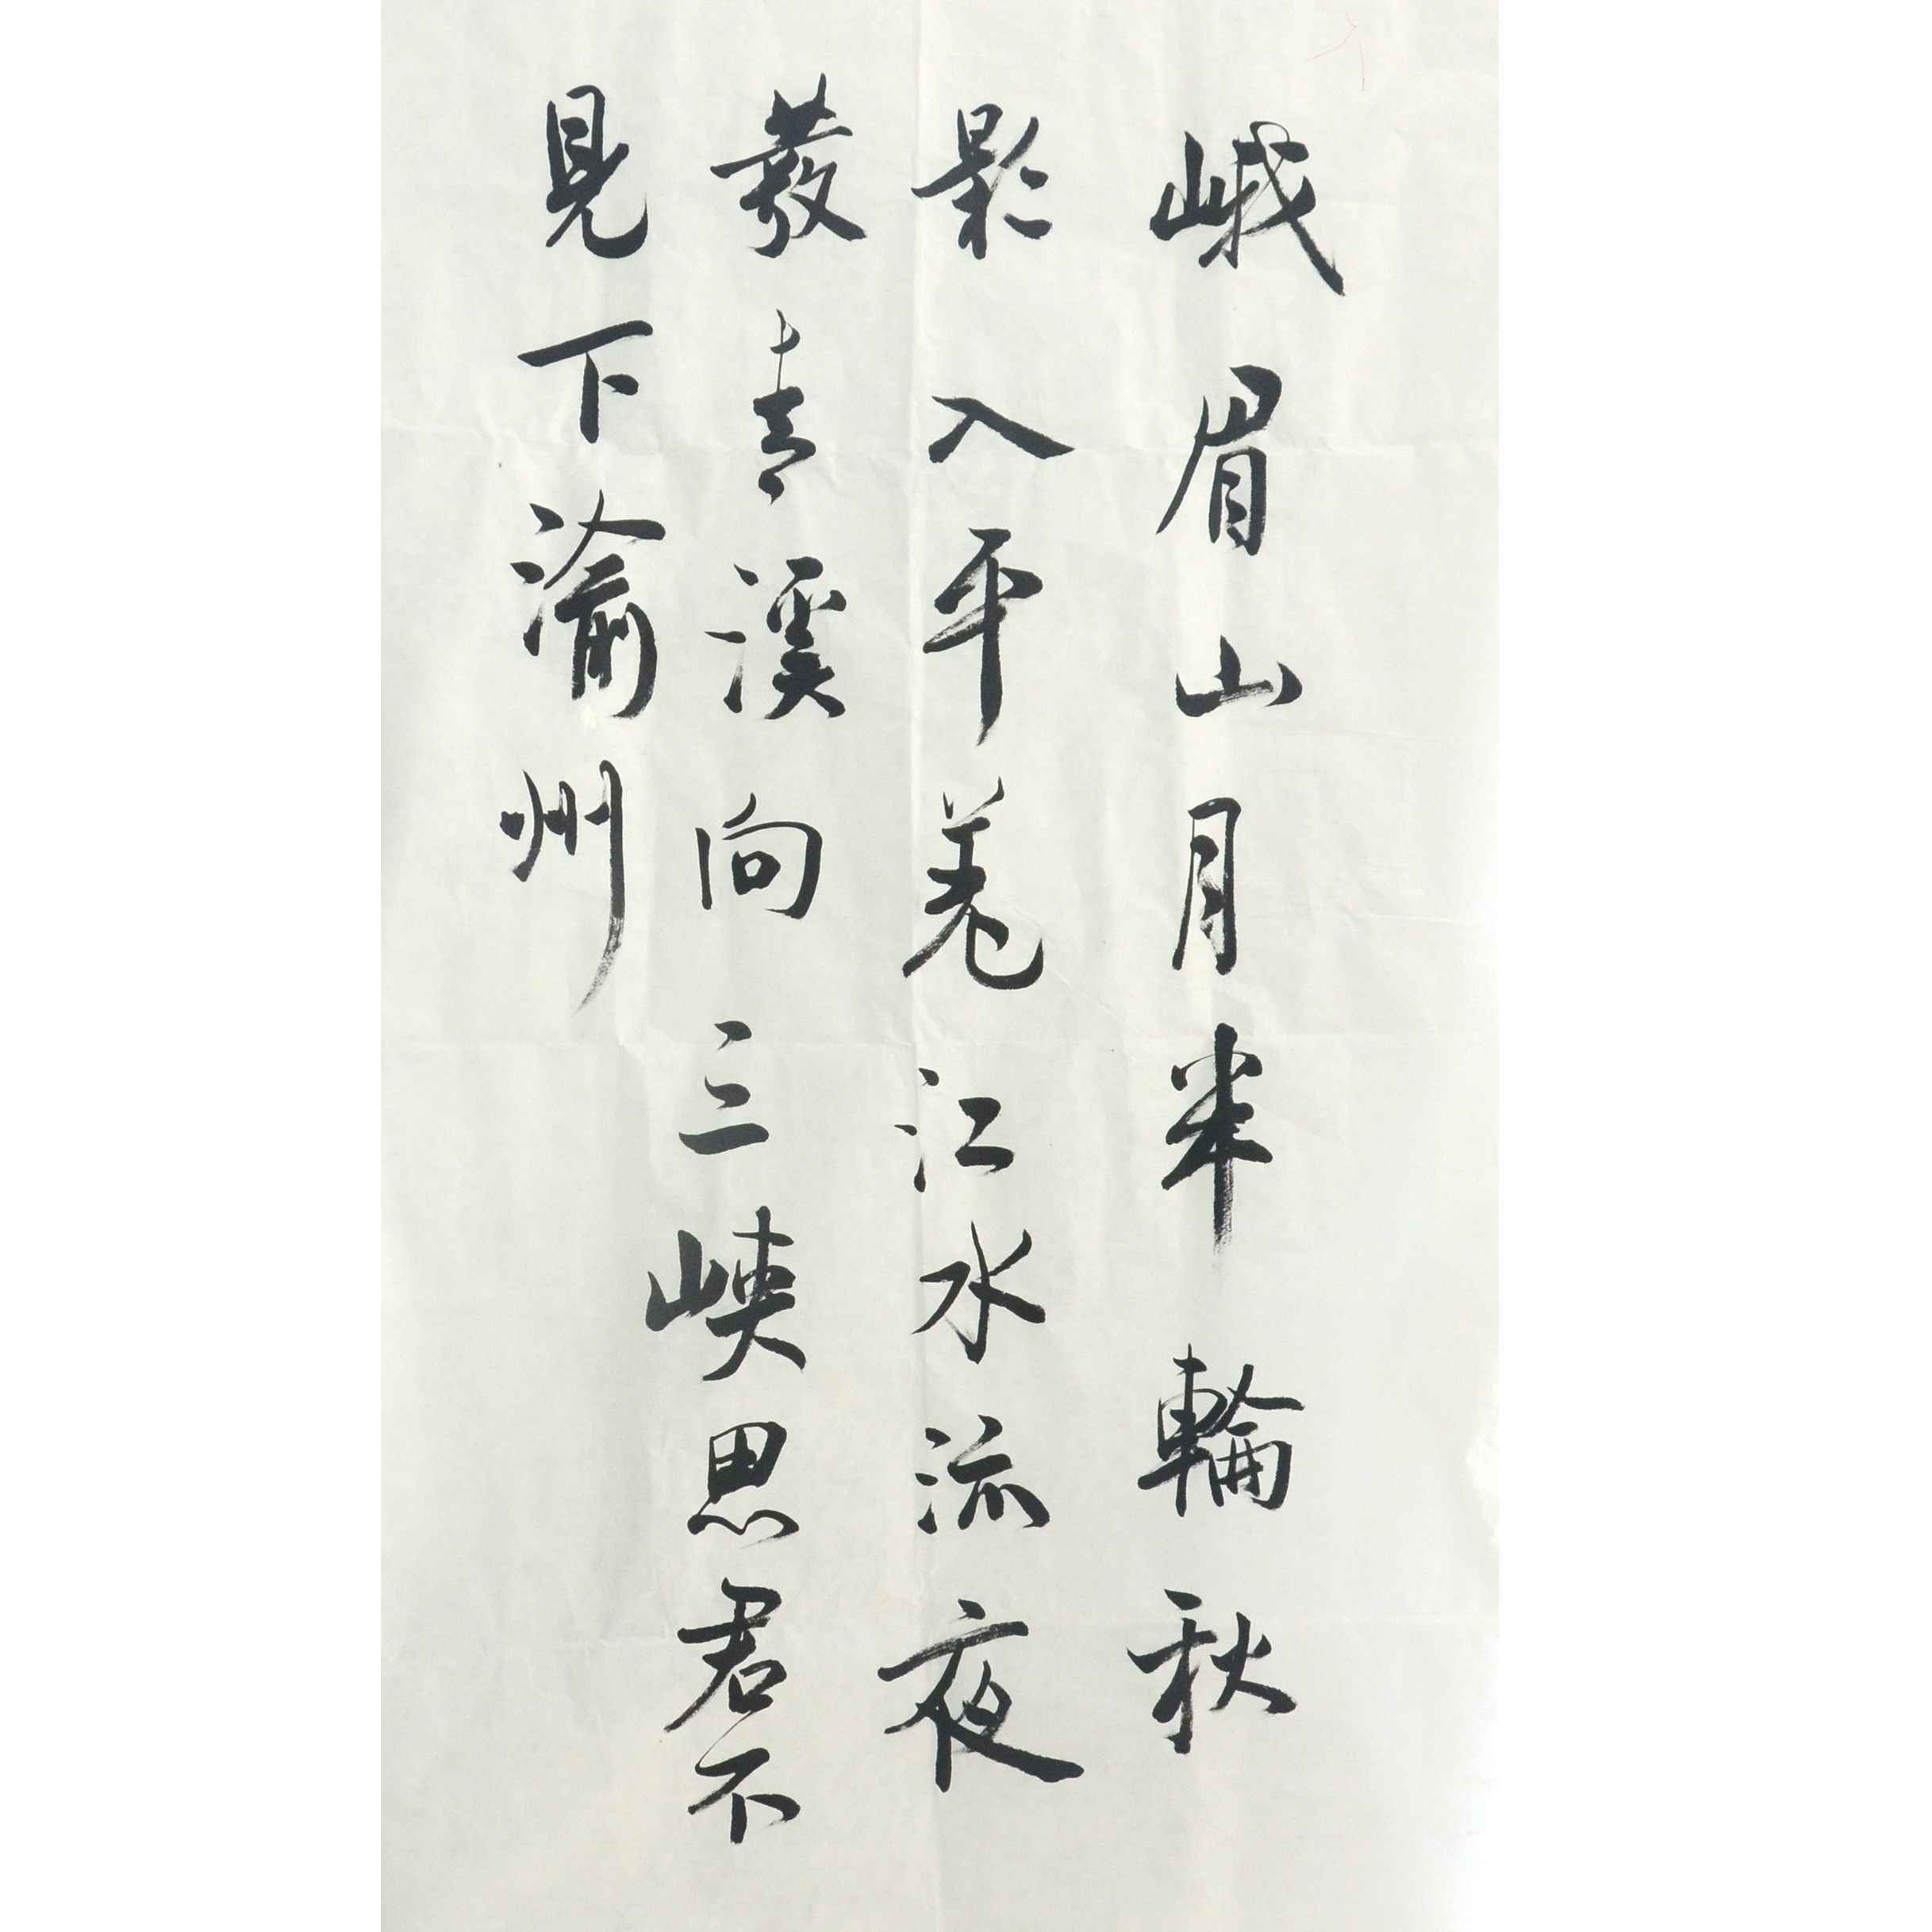 峨眉山月半輪秋
影入平羌江水流夜
發青溪向三峽思君不
見下渝州